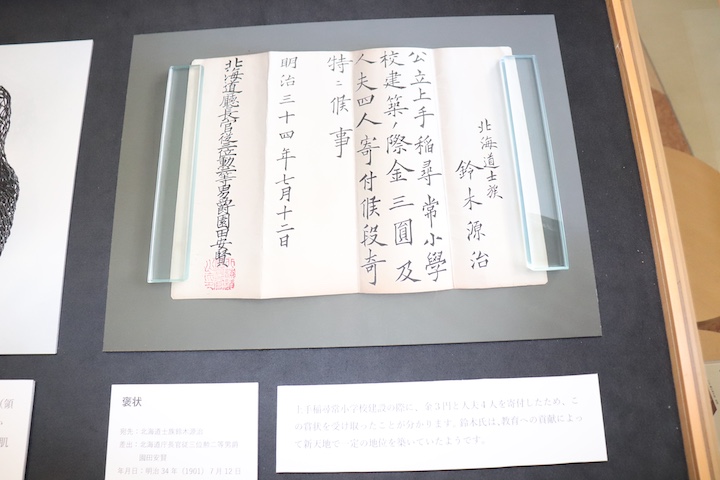 北海道士族
鈴木源治
公立上手稲尋常小學
校建築ノ際金三圓及
人夫四人寄付候段奇
特ニ候事
明治三十四年七月十二日
北海道廳長官従三位勲二等男爵園田安賢
褒状
宛先：北海道士族鈴木源治
差出：北海道庁長官従三位勲二等男爵
園田安賢
年月日：明治34年（1901）7月12日
上手稲尋常小学校建設の際に、金3円と人夫4人を寄付したため、こ
の賞状を受け取ったことが分かります。鈴木氏は、教育への貢献によっ
て新天地で一定の地位を築いていたようです。
（領
肌